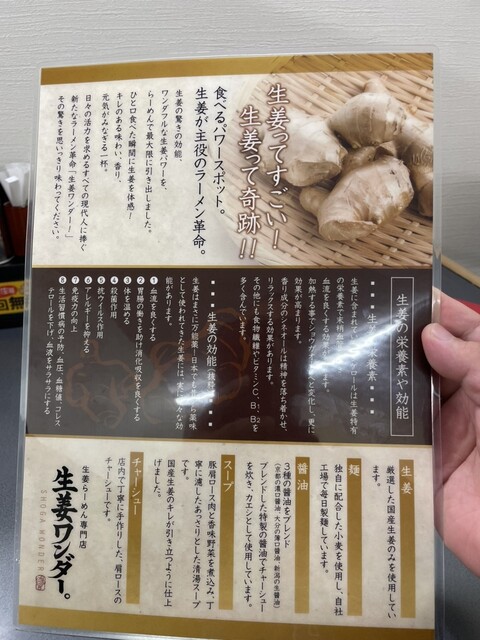 生姜ってすごい!
生姜って奇跡!!
食べるパワースポット。
生姜が主役のラーメン革命。
生姜の驚きの効能、
ワンダフルな生姜パワーを、
らーめんで最大限に引き出しました。
ひと口食べた瞬間に生姜を体感!
キレのある味わい、香り、
元気がみなぎる一杯。
日々の活力を求めるすべての現代人に捧ぐ
新たなラーメン革命「生姜ワンダー!」
その驚きを思いっきり味わってください。
生姜の栄養素や効能
栄養素
生姜に含まれて
ロールは生姜特有
の栄養素で末梢血
血流を良くする効
加熱する事でショウガ
と変化し、更に
効果が高まります。
香り成分のシネオールは精神を落ち着かせ、
リラックスする効果があります。
その他にも食物繊維やビタミンC、B1、B2を
多く含んでいます。
生姜の効能(抜粋)
生姜はまさに万能薬!日本でも昔から薬味
として使われてきた生姜には、実に様々な効
能があります。
❶血流を良くする
❷胃腸の働きを助け消化吸収を良くする
❸体を温める
❹殺菌作用
❺抗ウイルス作用
❻アレルギーを抑える
❼免疫力の向上
❽生活習慣病の予防、血圧、血糖値、コレス
テロールを下げ、血液をサラサラにする
生姜
厳選した国産生姜のみを使用してい
ます。
麺
独自に配合した小麦を使用し、自社
工場で毎日製麺しています。
醤油
3種の醤油をブレンド
(京都の濃口醤油、大分の薄口醤油、新潟の生醤油)
ブレンドした特製の醤油でチャーシュー
を炊き、カエシとして使用しています。
スープ
豚肩ロース肉と香味野菜を煮込み、丁
寧に濾したあっさりとした清湯スープ
です。
国産生姜のキレが引き立つように仕上
げました。
チャーシュー
店内で丁寧に手作りした、肩ロースの
チャーシューです。
生姜らーめん専門店
生姜ワンダー。
SHOGA WONDER